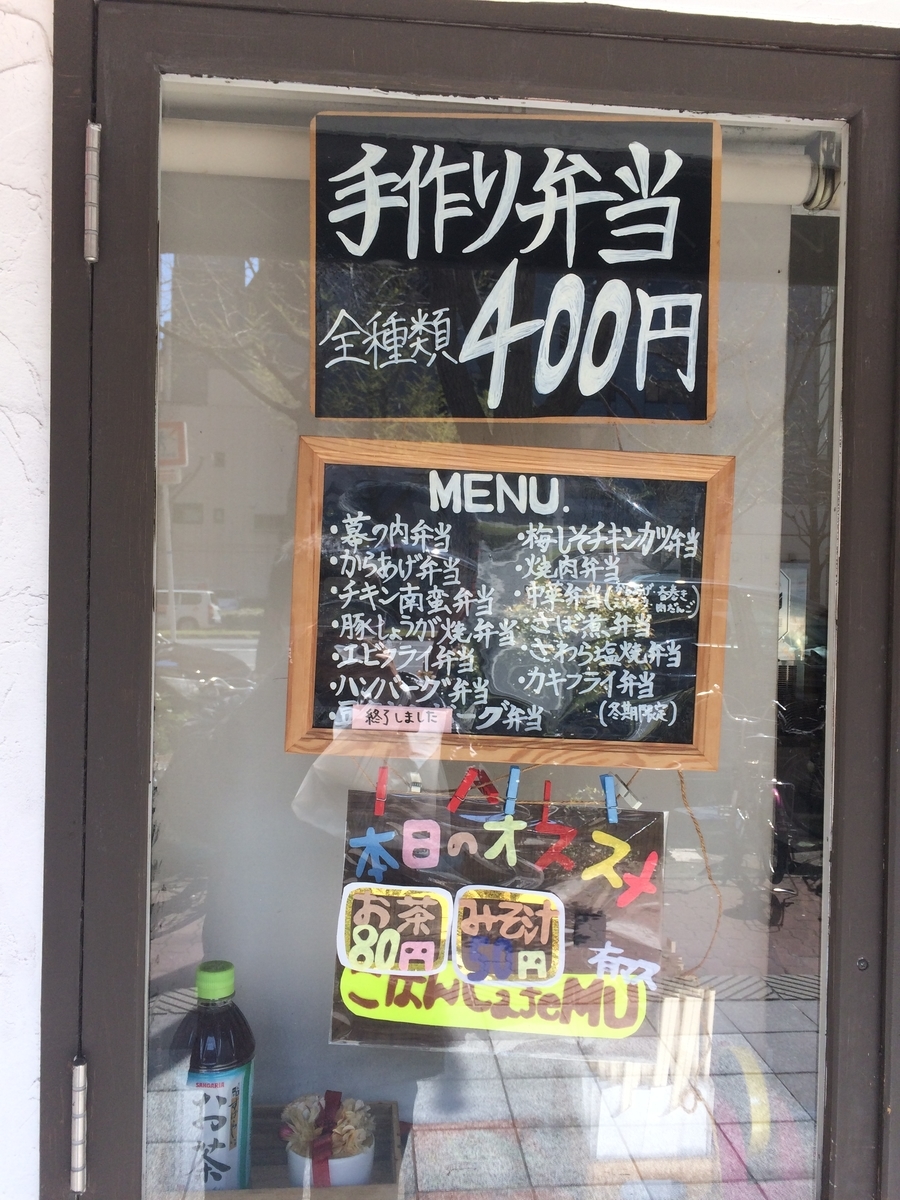 手作り弁当
全種類400円
MENU.
・幕の内弁当
・からあげ弁当
・チキン南蛮弁当
・豚しょうが焼弁当
・エビフライ弁当
・ハンバーグ弁当
終了しました
ーグ弁当
・梅しそチキンカツ弁当
・焼肉弁当
・中華弁当(春巻き
肉だんご)
・さば煮弁当
・さわら塩焼弁当
・カキフライ弁当
(冬期限定)
本日のオススメ
お茶
80円
みそ汁
50円
有ります
ごはん
SANGARIA
茶